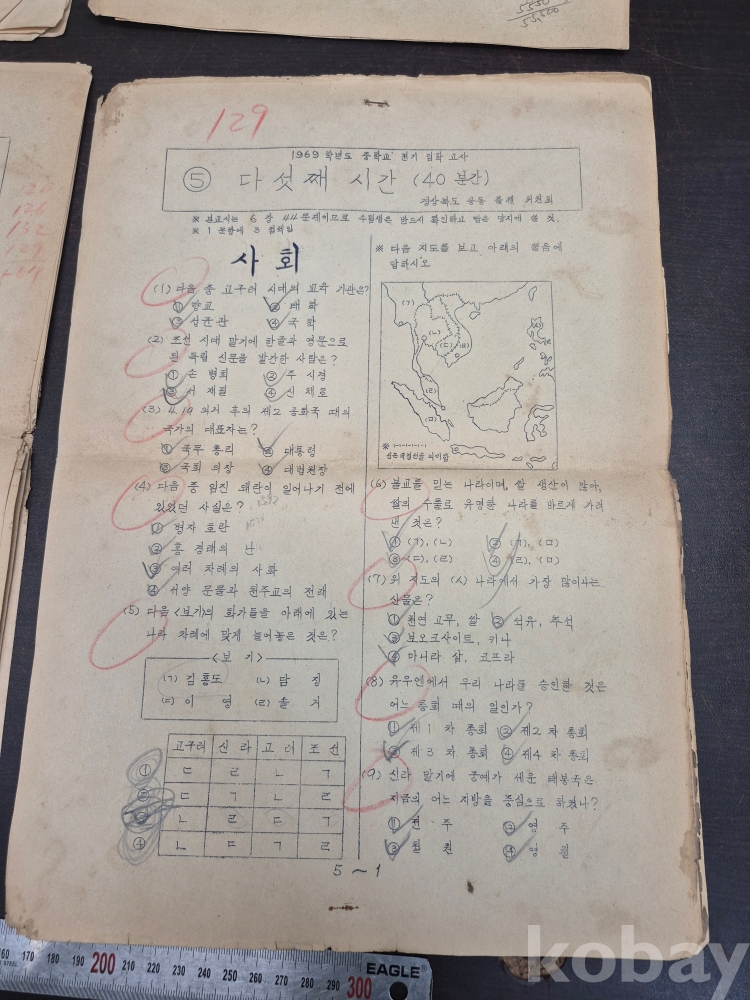 5550
55,500
129
1969 학년도 중학교 전기 입학 고사
⑤ 다섯째 시간 (40 분간)
경상북도 공동 출제 위원회
※ 본고사는 6 장 44 문제이므로 수험생은 반드시 확인하고 답은 답지에 쓸 것.
※ 1 문항에 3
사 회
(1) 다음 중 고구려 시대의 교육 기관은?
① 향교 ② 태학
③ 성균관 ④ 국학
(2) 조선 시대 말기에 한글과 영문으로
된 독립 신문을 발간한 사람은?
① 손병희 ② 주시경
③ 서재필 ④ 신채호
(3) 4.19 의거 후의 제2 공화국 때의
국가의 대표자는?
① 국무 총리 ② 대통령
③ 국회 의장 ④ 대법원장
(4) 다음 중 임진 왜란이 일어나기 전에
있었던 사실은?
① 병자 호란
② 홍 경래의 난
③ 여러 차례의 사화
④ 서양 문물과 천주교의 전래
(5) 다음 <보기>의 화가들을 아래에 있는
나라 차례에 맞게 늘어놓은 것은?
<보 기>
(ㄱ) 김홍도 (ㄴ) 담 징
(ㄷ) 이 영 (ㄹ) 솔 거
고구려 신 라 고 려 조 선
① ㄷ ㄹ ㄴ ㄱ
② ㄷ ㄱ ㄴ ㄹ
③ ㄴ ㄹ ㄷ ㄱ
④ ㄴ ㄷ ㄱ ㄹ
※ 다음 지도를 보고 아래의 물음에
답하시오
(ㄱ)
(ㄴ)
(ㄷ)
(ㄹ)
(ㅁ)
(6) 불교를 믿는 나라이며, 쌀 생산이 많아,
쌀의 수출로 유명한 나라를 바르게 가려
낸 것은?
① (ㄱ), (ㄴ) ② (ㄱ), (ㅁ)
③ (ㄷ), (ㄹ) ④ (ㄹ), (ㅁ)
(7) 위 지도의 (ㅅ) 나라에서 가장 많이나는
산물은?
① 천연 고무, 쌀 ② 석유, 주석
③ 보오크사이트, 키나
④ 마니라 삼, 코프라
(8) 유우엔에서 우리 나라를 승인한 것은
어느 총회 때의 일인가?
① 제1 차 총회 ② 제2 차 총회
③ 제3 차 총회 ④ 제4 차 총회
(9) 신라 말기에 궁예가 세운 태봉국은
지금의 어느 지방을 중심으로 하였나?
① 전 주 ② 영 주
③ 철 원 ④ 영 월
5 ~ 1
160 170 180 190 200 210 220 230 240 250 260 270 280 290 300
EAGLE
kobay